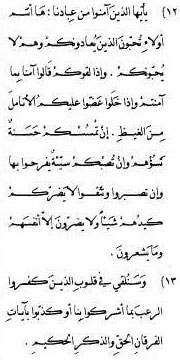 ١٢) يأيّها الذين آمنوا من عبادنا : ها أنتم
أولاء تحبّون الذين يعادونكم وهم لا
يحبّونكم . وإذا لقوكم قالوا آمنا بما
آمنتم وإذا خلوا عضوا عليكم الأنامل
من الغيظ . إن تمسسكم حسنة
تسؤهم وإن تصبكم سيّئة يفرحوا بها
وإن تصبروا وتتقوا لا يضرّكم
كيدهم شيئاً ولا يضرون إلا أنفسهم
وما يشعرون .
١٣) وسنلقي في قلوب الذين كفروا
الرعب بما أشركوا بنا أو كذّبوا بآيات
الفرقان الحق والذكر الحكيم .